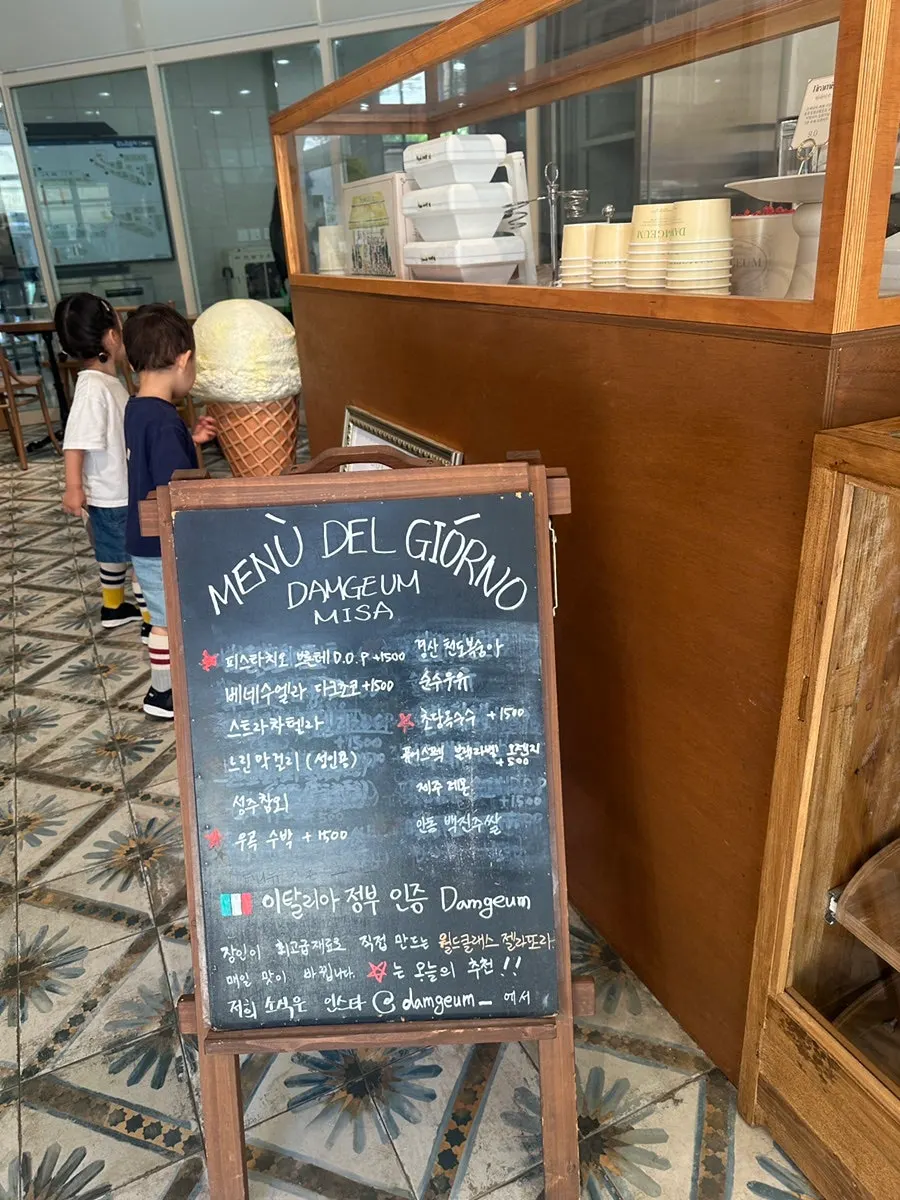 MENÙ DEL GIÓRNO
DAMGEUM
MISA
피스타치오 브론테 D.O.P +1500
베네수엘라 다크초코 +1500
스트라챠텔라
느린 막걸리 (성인용)
성주참외
우곡 수박 +1500
경산 천도복숭아
순수우유
초당옥수수 +1500
퓨어스펙 블러드 오렌지
+500
제주 레몬
안동 백진주쌀
이탈리아 정부 인증 Damgeum
장인이 최고급재료로 직접 만드는 월드클래스 젤라또라
매일 맛이 바뀝니다. ☆는 오늘의 추천!!
저희 소식은 인스타 @damgeum_ 에서
DAMGEUM